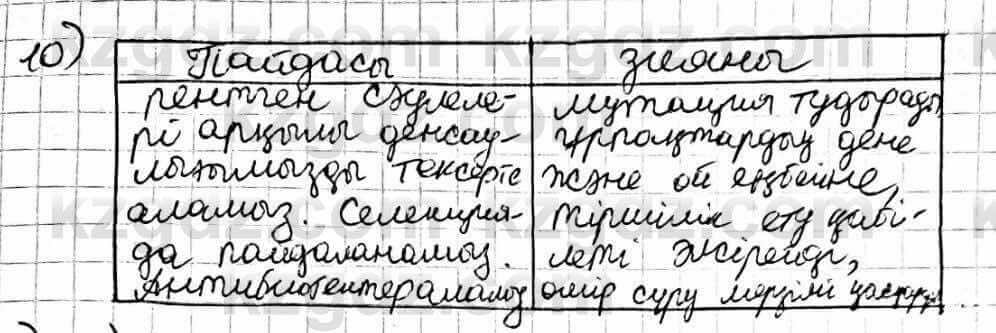 10)
Пайдасы
зияны
рентген сәулеле-
рі арқылы денсау-
лығымызды тексерте
аламыз. Селекция-
да пайдаланамыз.
Антибиотектер аламыз
мутация тудырады,
Ұрпақтардың дене
және ой еңбегіне,
тіршілік ету қабі-
леті әлсірейді,
өмір сүру мерзімі